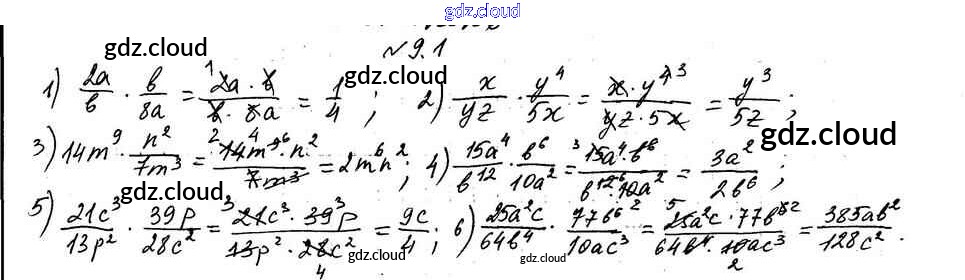 gdz.cloud
№ 9.1
gdz.cloud gdz.cloud
1) 2a/b · b/8a = 2a·b/b·8a = 1/4 ; 2) x/yz · y⁴/5x = x·y⁴/yz·5x = y³/5z ;
gdz.cloud gdz.cloud
3) 14m⁹ · n²/7m³ = 14m⁹·n²/7m³ = 2m⁶n² ; 4) 15a⁴/b¹² · b⁶/10a² = 15a⁴·b⁶/b¹²·10a² = 3a²/2b⁶ ;
5) 21c³/13p² · 39p/28c² = 21c³·39p/13p²·28c² = 9c/4 ; 6) 25a²c/64b⁴ · 77b⁶/10ac³ = 25a²c·77b⁶/64b⁴·10ac³ = 385ab²/128c² .
gdz.cloud gdz.cloud